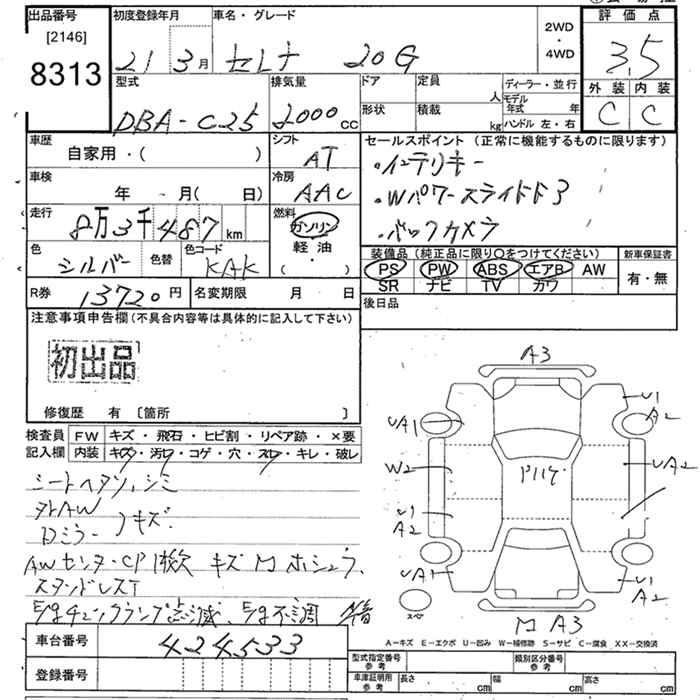 出品番号 初度登録年月 車名・グレード 2WD 評価点
[2146]
8313
21 3月 セレナ 20G ・ 4WD 3.5
型式 排気量 ドア 定員 人 ディーラー・並行 外装 内装
DBA-C25 2000cc 形状 積載 kg モデル年式 年 C C
ハンドル 左・右
車歴 シフト セールスポイント (正常に機能するものに限ります)
自家用・( ) AT ・インテリキー
車検 冷房
年 ・ 月( 日) AAC ・Wパワースライドドア
走行 燃料
8万3千487km ガソリン ・バックカメラ
色 色替 色コード 軽油 装備品 (純正品に限り○をつけてください) 新車保証書
シルバー KAK ( ・ ) PS PW ABS エアB AW 有・無
SR ナビ TV カワ
R券 13720円 名変期限 月 日 後日品
注意事項申告欄 (不具合内容等は具体的に記入して下さい)
初出品
修復歴 有 [箇所 ]
検査員 FW キズ・飛石・ヒビ割・リペア跡・×要
記入欄 内装 キズ・汚レ・コゲ・穴・スレ・キレ・破レ
シートヘタリ、シミ
タイAW
Dミラー キズ
AWセンターCP1枚欠 キズM ホシュウ、
スタンドレスT
E/gチェックランプ点滅、E/g不調
車台番号 424533
登録番号
A3
U1
A2
UA1
UA2
W2
U1
A2
UA1
U1
A2
スペア
M A3
A=キズ E=エクボ U=凹み W=補修跡 S=サビ C=腐食 XX=交換済
型式指定番号 参考 類別区分番号 参考
車庫証明用 参考 長さ cm 幅 cm 高さ cm